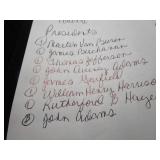 Presidents
① Martin Van Buren
② James Buchanan
③ Thomas Jefferson
④ John Quincy Adams
⑤ James Garfield
⑥ William Henry Harrison
⑦ Rutherford B Hayes
⑧ John Adams